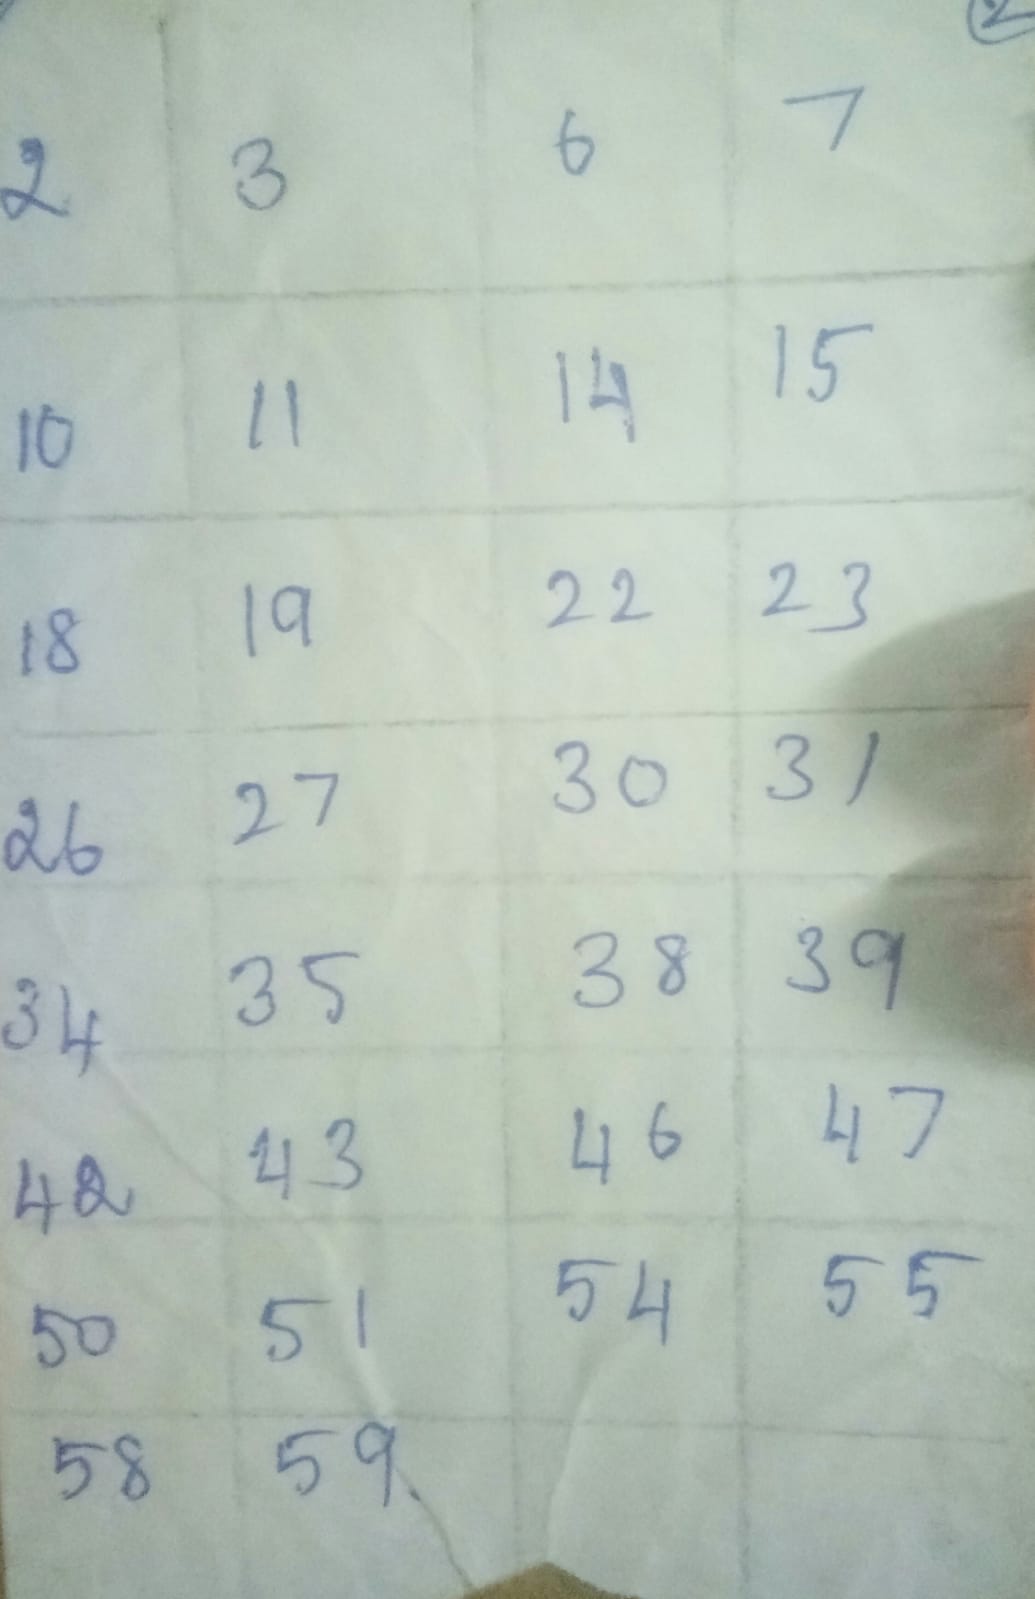 2
2 3 6 7
10 11 14 15
18 19 22 23
26 27 30 31
34 35 38 39
42 43 46 47
50 51 54 55
58 59